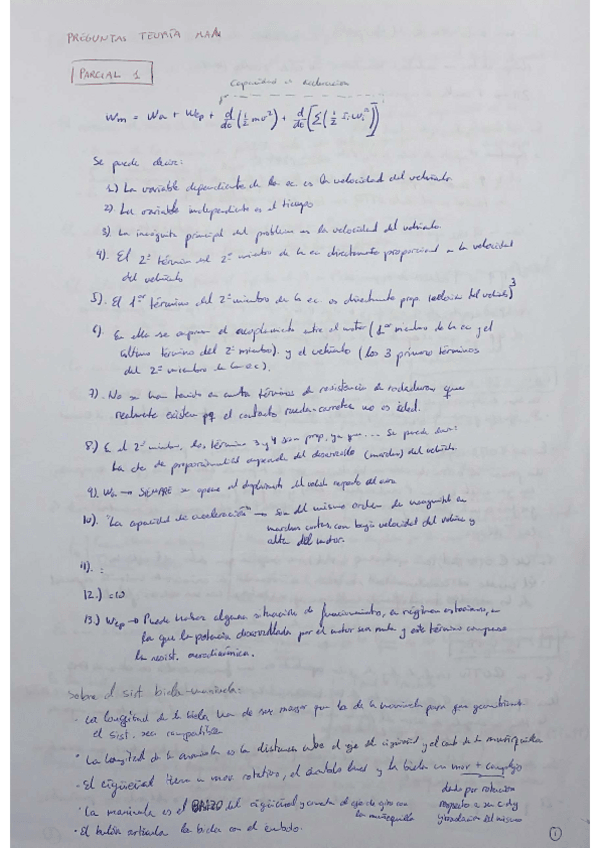 PREGUNTAS TEORÍA MAK
PARCIAL 1
Capacidad de aceleración
Wm = Wa + Wep + d/dt (1/2 mv²) + d/dt [Σ(1/2 Ii wi²)]
Se puede decir:
1) La variable dependiente de la ec. es la velocidad del vehículo.
2) La variable independiente es el tiempo
3) La incógnita principal del problema es la velocidad del vehículo.
4). El 2º término del 2º miembro de la ec directamente proporcional a la velocidad
del vehículo
5). El 1er término del 2º miembro de la ec. es directamente prop. (velocidad del vehículo)³
6). En ella se expresa el acoplamiento entre el motor (1er miembro de la ec y el
último término del 2º miembro). y el vehículo (los 3 primeros términos
del 2º miembro de la ec).
7). No se han tenido en cuenta términos de resistencia de rodadura, que
realmente existen pq el contacto rueda-carretera no es ideal.
8) En el 2º miembro, los término 3 y 4 son prop, ya que ... Se puede decir:
La cte de proporcionalidad depende del desarrollo (marcha) del vehículo.
9). Wa → SIEMPRE se opone al desplazamiento del vehículo respecto del aire
10). "La capacidad de aceleración" → son del mismo orden de magnitud en
marchas cortas, con baja velocidad del vehículo y
alta del motor.
11). :
12.) =10
13.) Wep → Puede haber alguna situación de funcionamiento, en régimen estacionario, en
la que la potencia desarrollada por el motor sea nula y este término compense
la resist. aerodinámica.
Sobre el sist biela-manivela:
· La longitud de la biela ha de ser mayor que la de la manivela para que geométricamente
el sist. sea compatible
· La longitud de la manivela es la distancia entre el eje del cigüeñal y el centro de la muñequilla
· El cigüeñal tiene un mov rotativo, el émbolo lineal y la biela un mov + complejo
dado por rotación
respecto a su cdg
y traslación del mismo
· La manivela es el BRAZO del cigüeñal y conecta el eje de giro con
la muñequilla
· El bulón articula la biela con el émbolo.
1